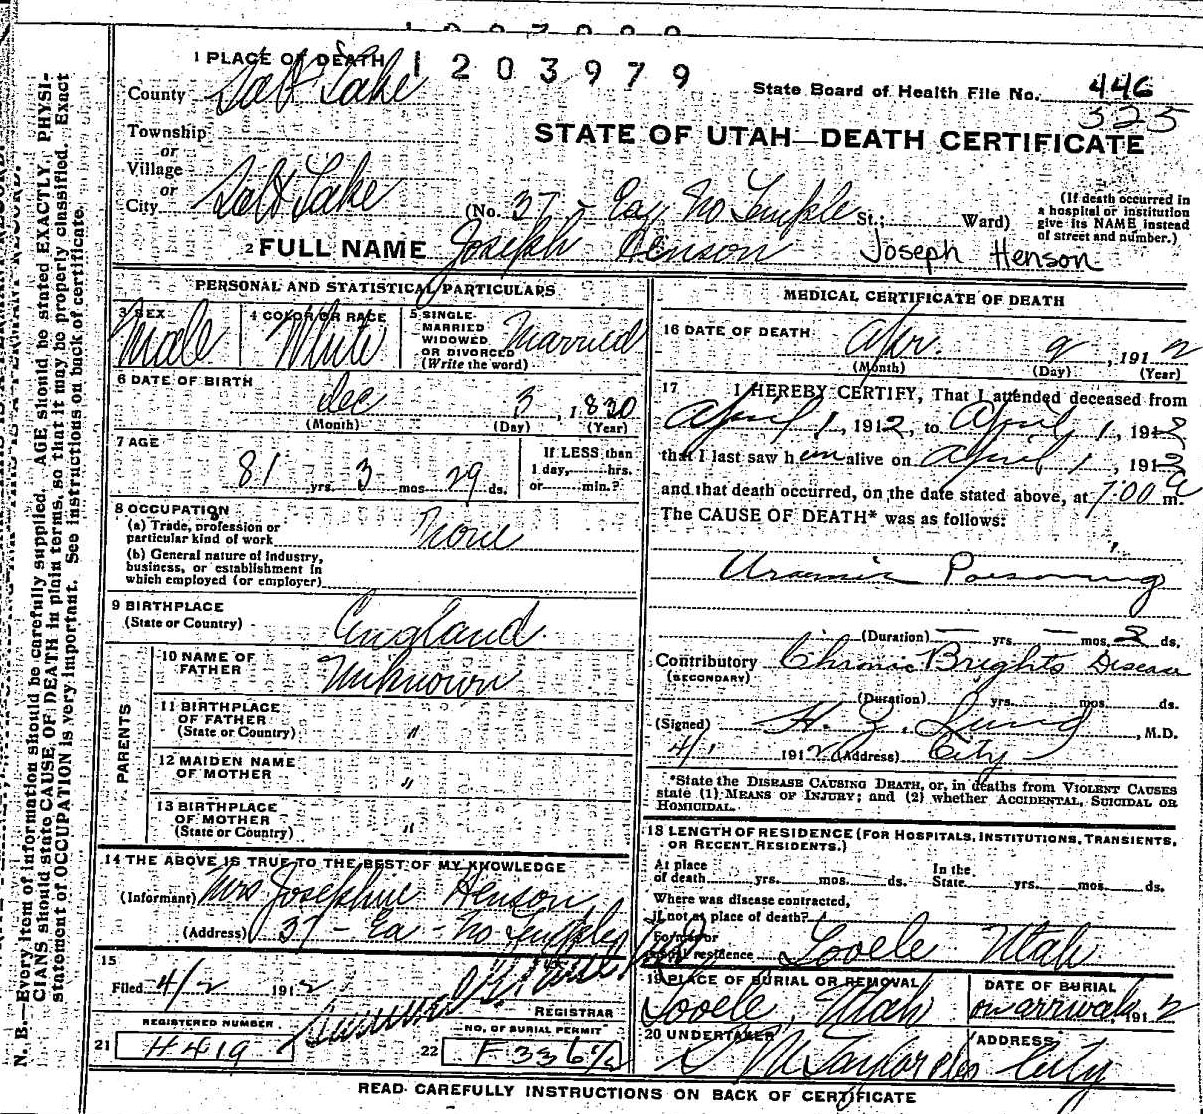 1 PLACE OF DEATH 1 2 0 3 9 7 9
County Salt Lake
State Board of Health File No. 446
325
Township
or
Village
or
City Salt Lake
STATE OF UTAH—DEATH CERTIFICATE
(No. 37 - Ea No Temple St.; Ward)
(If death occurred in
a hospital or institution
give its NAME instead
of street and number.)
2 FULL NAME Joseph Henson Joseph Henson
PERSONAL AND STATISTICAL PARTICULARS
3 SEX
Male
4 COLOR OR RACE
White
5 SINGLE
MARRIED
WIDOWED
OR DIVORCED
(Write the word)
Married
6 DATE OF BIRTH
Dec 3, 1830
(Month) (Day) (Year)
7 AGE
81 yrs. 3 mos. 29 ds.
If LESS than
1 day, hrs.
or min.?
8 OCCUPATION
(a) Trade, profession or
particular kind of work None
(b) General nature of industry,
business, or establishment in
which employed (or employer)
9 BIRTHPLACE
(State or Country) England
PARENTS
10 NAME OF
FATHER Unknown
11 BIRTHPLACE
OF FATHER
(State or Country) "
12 MAIDEN NAME
OF MOTHER "
13 BIRTHPLACE
OF MOTHER
(State or Country) "
14 THE ABOVE IS TRUE TO THE BEST OF MY KNOWLEDGE
(Informant) Mrs Josephine Henson
(Address) 37 - Ea - No Temple
15
Filed 4/2 1912
REGISTRAR
REGISTERED NUMBER
21 H419
NO. OF BURIAL PERMIT
22 F336
MEDICAL CERTIFICATE OF DEATH
16 DATE OF DEATH
Apr. 1912
(Month) (Day) (Year)
17 I HEREBY CERTIFY, That I attended deceased from
April 1, 1912, to April 1, 191
that I last saw him alive on April 1, 191
and that death occurred, on the date stated above, at 7.00 a m.
The CAUSE OF DEATH* was as follows:
Uraemic Poisoning
(Duration) — yrs. — mos. 2 ds.
Contributory Chronic Brights Disease
(SECONDARY)
(Duration) yrs. mos. ds.
(Signed) H. Z. Lund, M.D.
4/1 1912 (Address) City
*State the DISEASE CAUSING DEATH, or, in deaths from VIOLENT CAUSES
state (1) MEANS OF INJURY; and (2) whether ACCIDENTAL, SUICIDAL OR
HOMICIDAL.
18 LENGTH OF RESIDENCE (FOR HOSPITALS, INSTITUTIONS, TRANSIENTS,
OR RECENT RESIDENTS.)
At place
of death yrs. mos. ds.
In the
State yrs. mos. ds.
Where was disease contracted,
if not at place of death?
Former or
usual residence Tooele Utah
19 PLACE OF BURIAL OR REMOVAL
Tooele, Utah
DATE OF BURIAL
on arrival, 1912
20 UNDERTAKER
S M Taylor &Co
ADDRESS
City
READ CAREFULLY INSTRUCTIONS ON BACK OF CERTIFICATE
N. B.—Every item of information should be carefully supplied. AGE should be stated EXACTLY. PHYSI-
CIANS should state CAUSE OF DEATH in plain terms, so that it may be properly classified. Exact
statement of OCCUPATION is very important. See instructions on back of certificate.